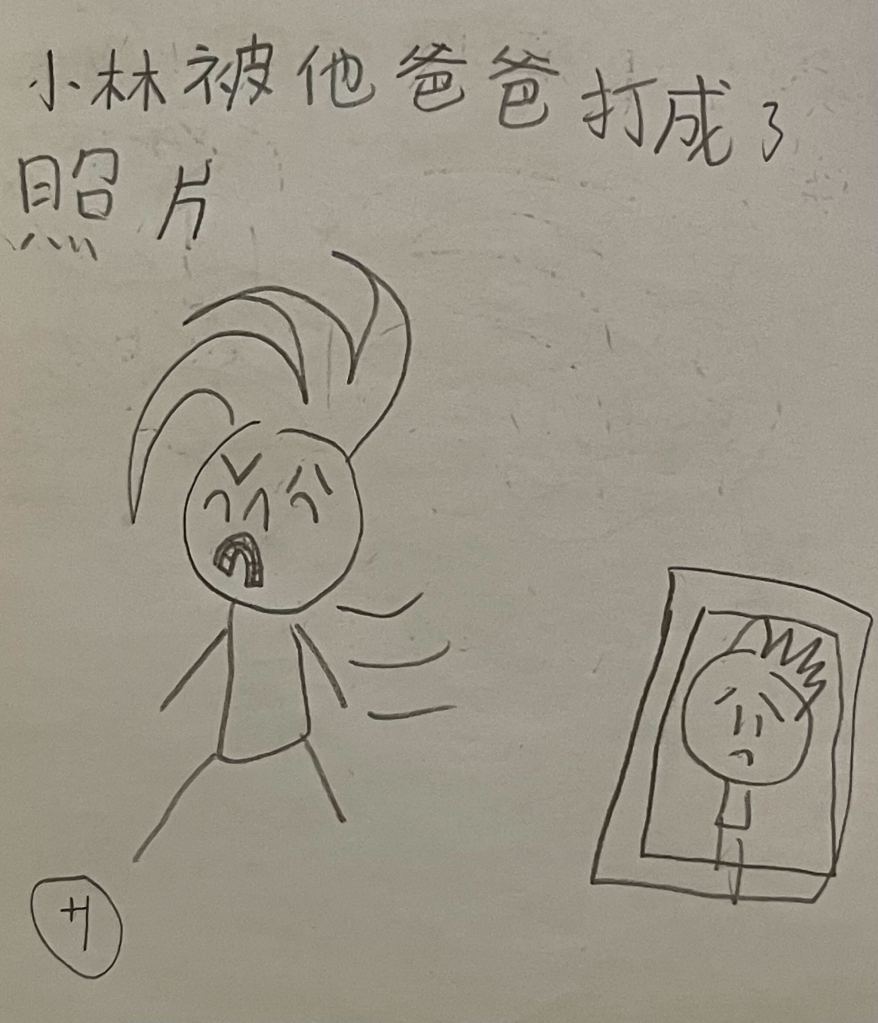 小林被他爸爸打成了
照片
4